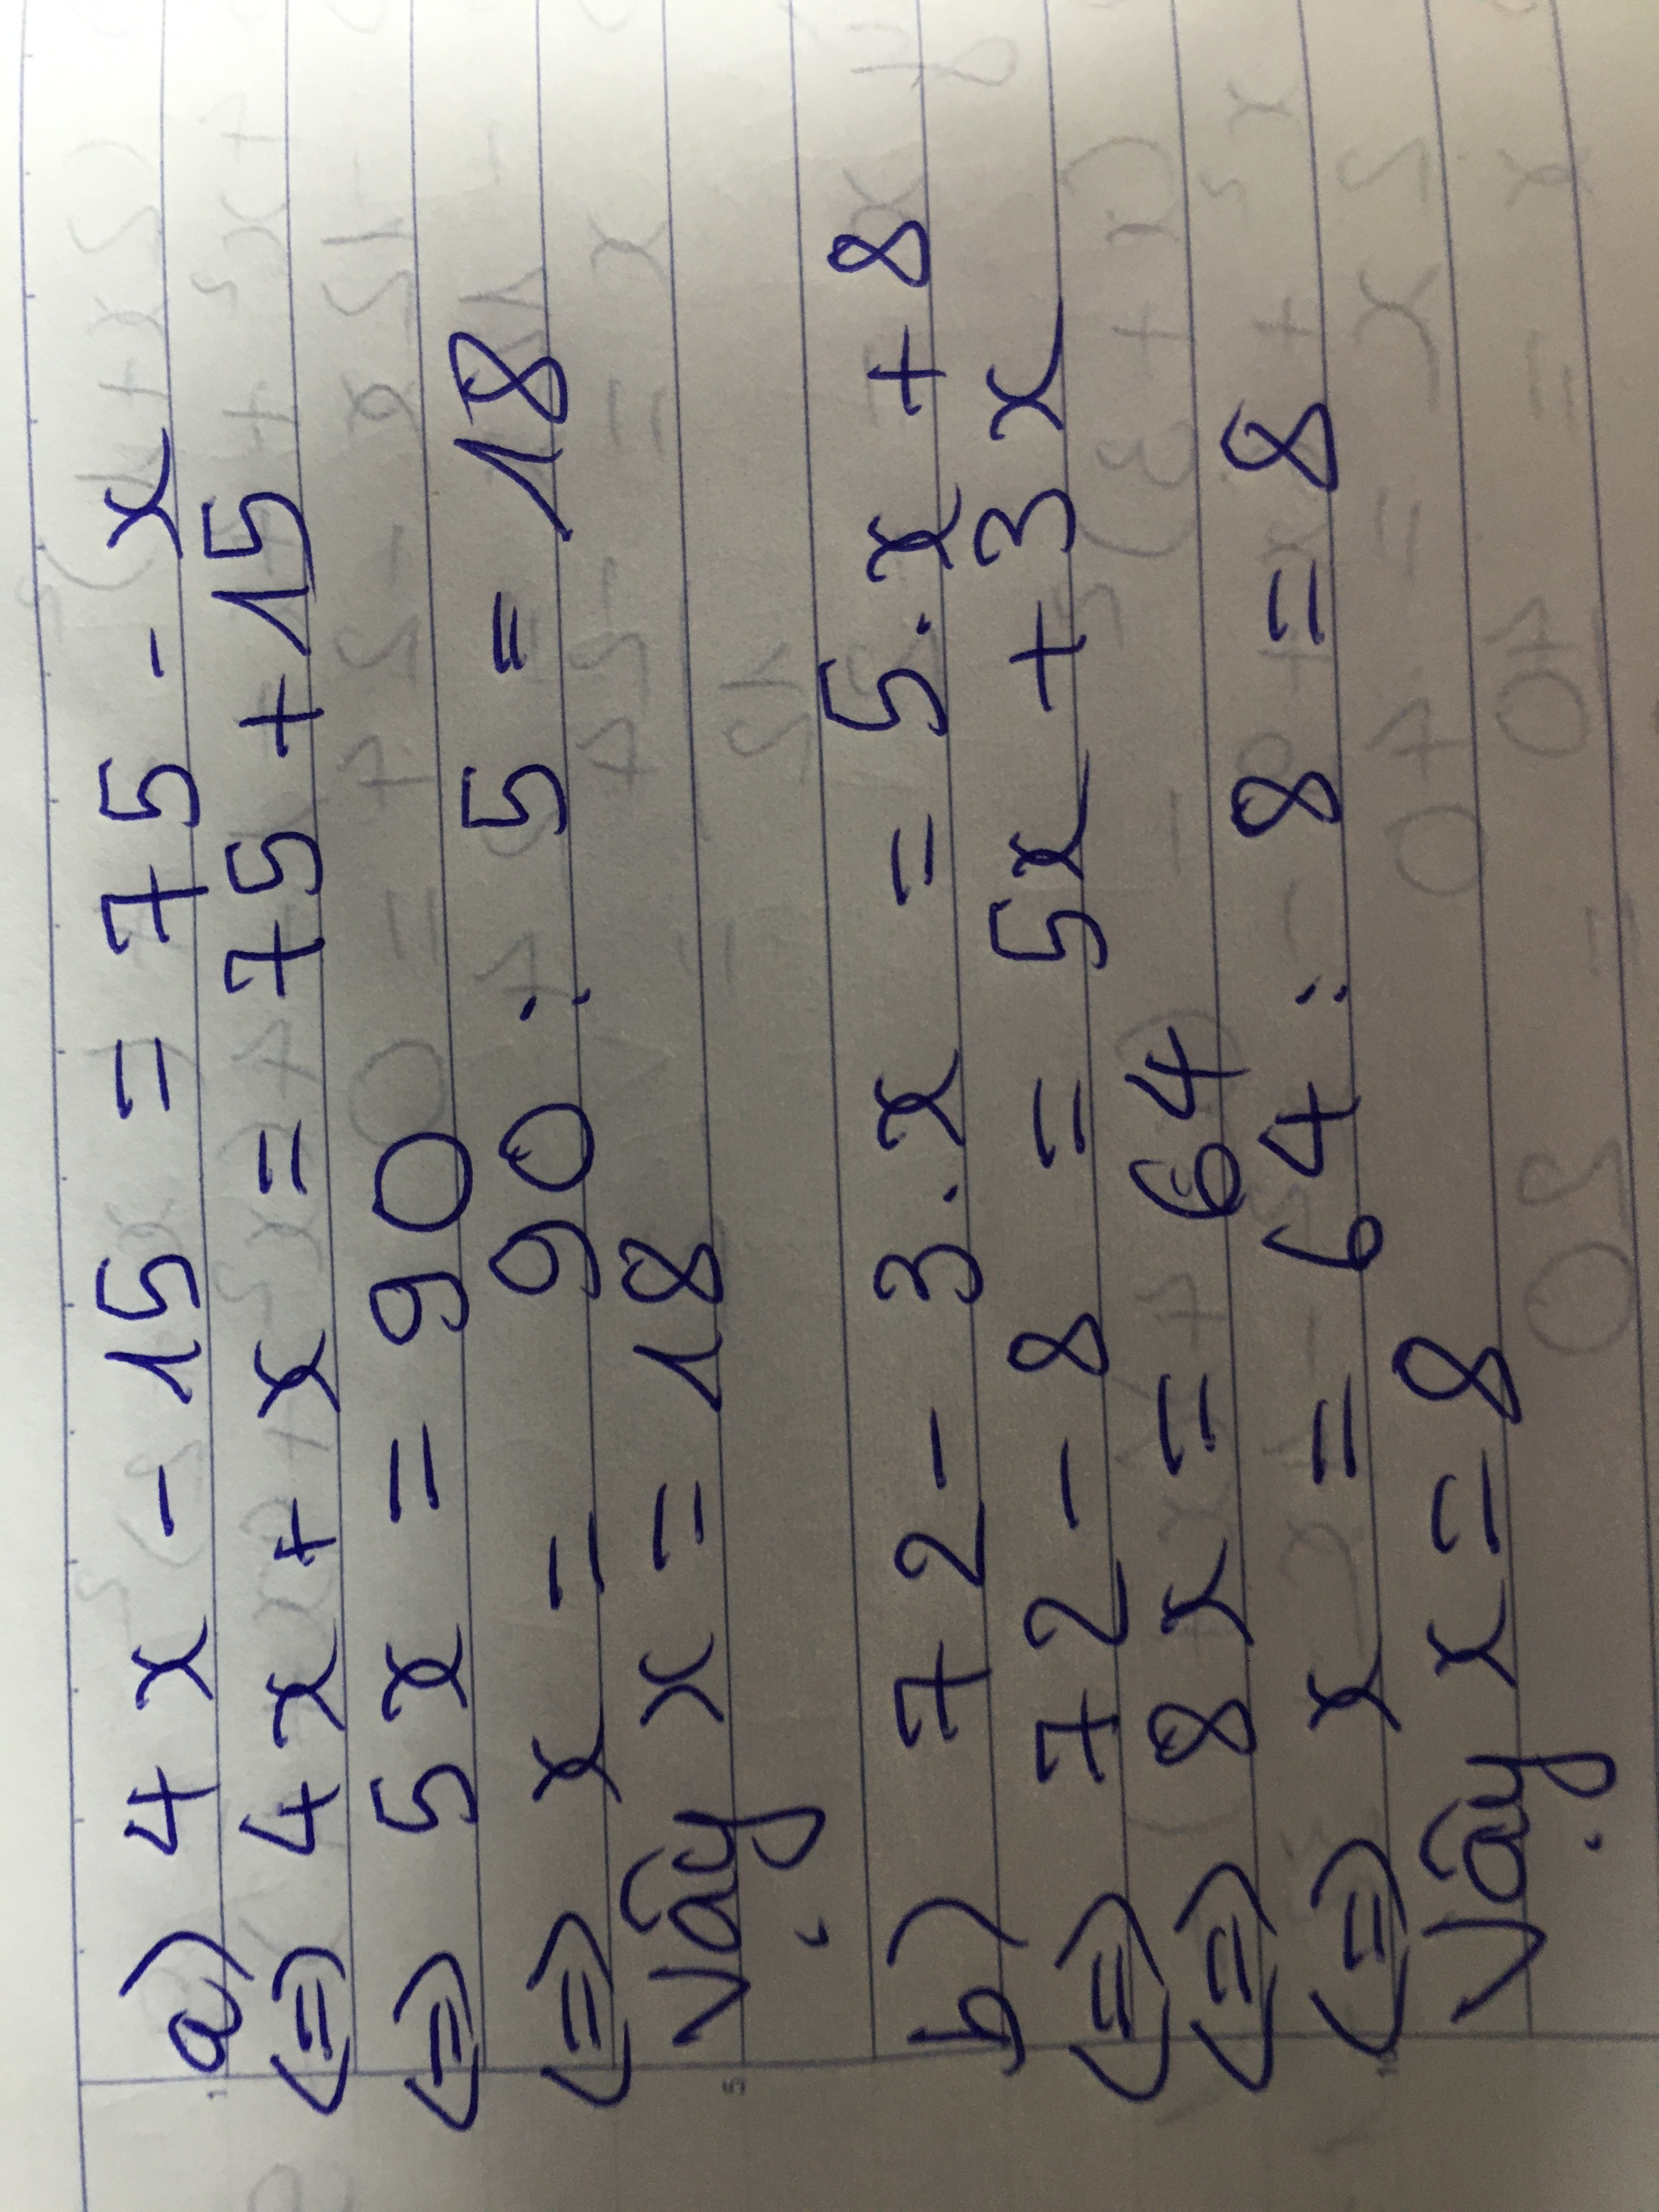 a) 4x - 15 = 75 - x
⇔ 4x + x = 75 + 15
⇔ 5x = 90
⇔ x = 90 : 5 = 18
Vậy x = 18
b) 72 - 3.x = 5.x + 8
⇔ 72 - 8 = 5x + 3x
⇔ 8x = 64
⇔ x = 64 : 8 = 8
Vậy x = 8